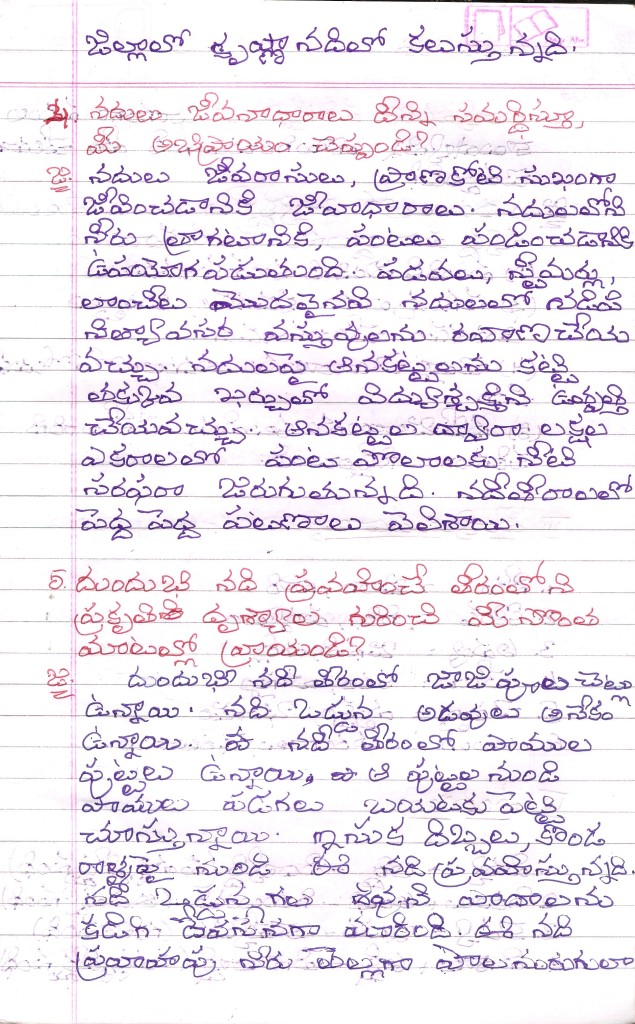 జిల్లాలో కృష్ణా నదిలో కలుస్తున్నది.
4. నదులు జీవనాధారాలు దీన్ని సమర్థిస్తూ,
మీ అభిప్రాయం చెప్పండి?
జ. నదులు జీవరాసులు, ప్రాణకోటి సుఖంగా
జీవించడానికి జీవాధారాలు. నదులలోని
నీరు త్రాగటానికి, పంటలు పండించడానికి
ఉపయోగపడుతుంది. పడవలు, స్టీమర్లు,
లాంచీలు మొదలైనవి నదులలో నడిపి
నిత్యావసర వస్తువులను రవాణా చేయ
వచ్చు. నదులపై ఆనకట్టలను కట్టి
తక్కువ ఖర్చుతో విద్యుచ్ఛక్తిని ఉత్పత్తి
చేయవచ్చు. ఆనకట్టల ద్వారా లక్షల
ఎకరాలలో పంట పొలాలకు నీటి
సరఫరా జరుగుతున్నది. నదీతీరాలలో
పెద్ద పెద్ద పట్టణాలు వెలిశాయి.
5. దుందుభి నది ప్రవహించే తీరంలోని
ప్రకృతి దృశ్యాల గురించి మీ సొంత
మాటల్లో వ్రాయండి?
జ. దుందుభి నదీ తీరంలో జాజి పూల చెట్లు
ఉన్నాయి. నది ఒడ్డున అడవులు అనేకం
ఉన్నాయి. ఈ నదీ తీరంలో పాముల
పుట్టలు ఉన్నాయి, ఆ పుట్టల నుండి
పాములు పడగలు బయటకు పెట్టి
చూస్తున్నాయి. ఇసుక దిబ్బలు, కొండ
రాళ్ళపై నుండి ఈ నది ప్రవహిస్తున్నది.
నది ఒడ్డున గల పాదాలను
కడిగి పావనంగా మారింది. ఈ నది
ప్రవాహపు నీరు తెల్లగా పాలనురుగులా